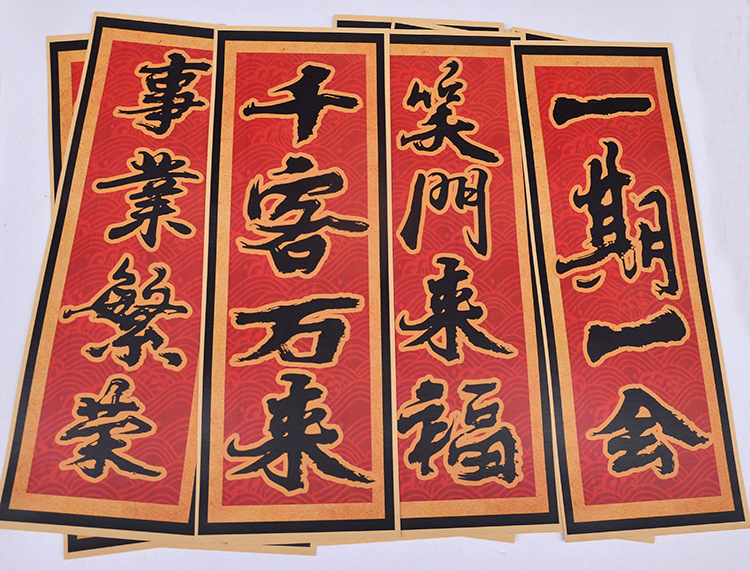 事業繁栄
千客万来
笑門来福
一期一会